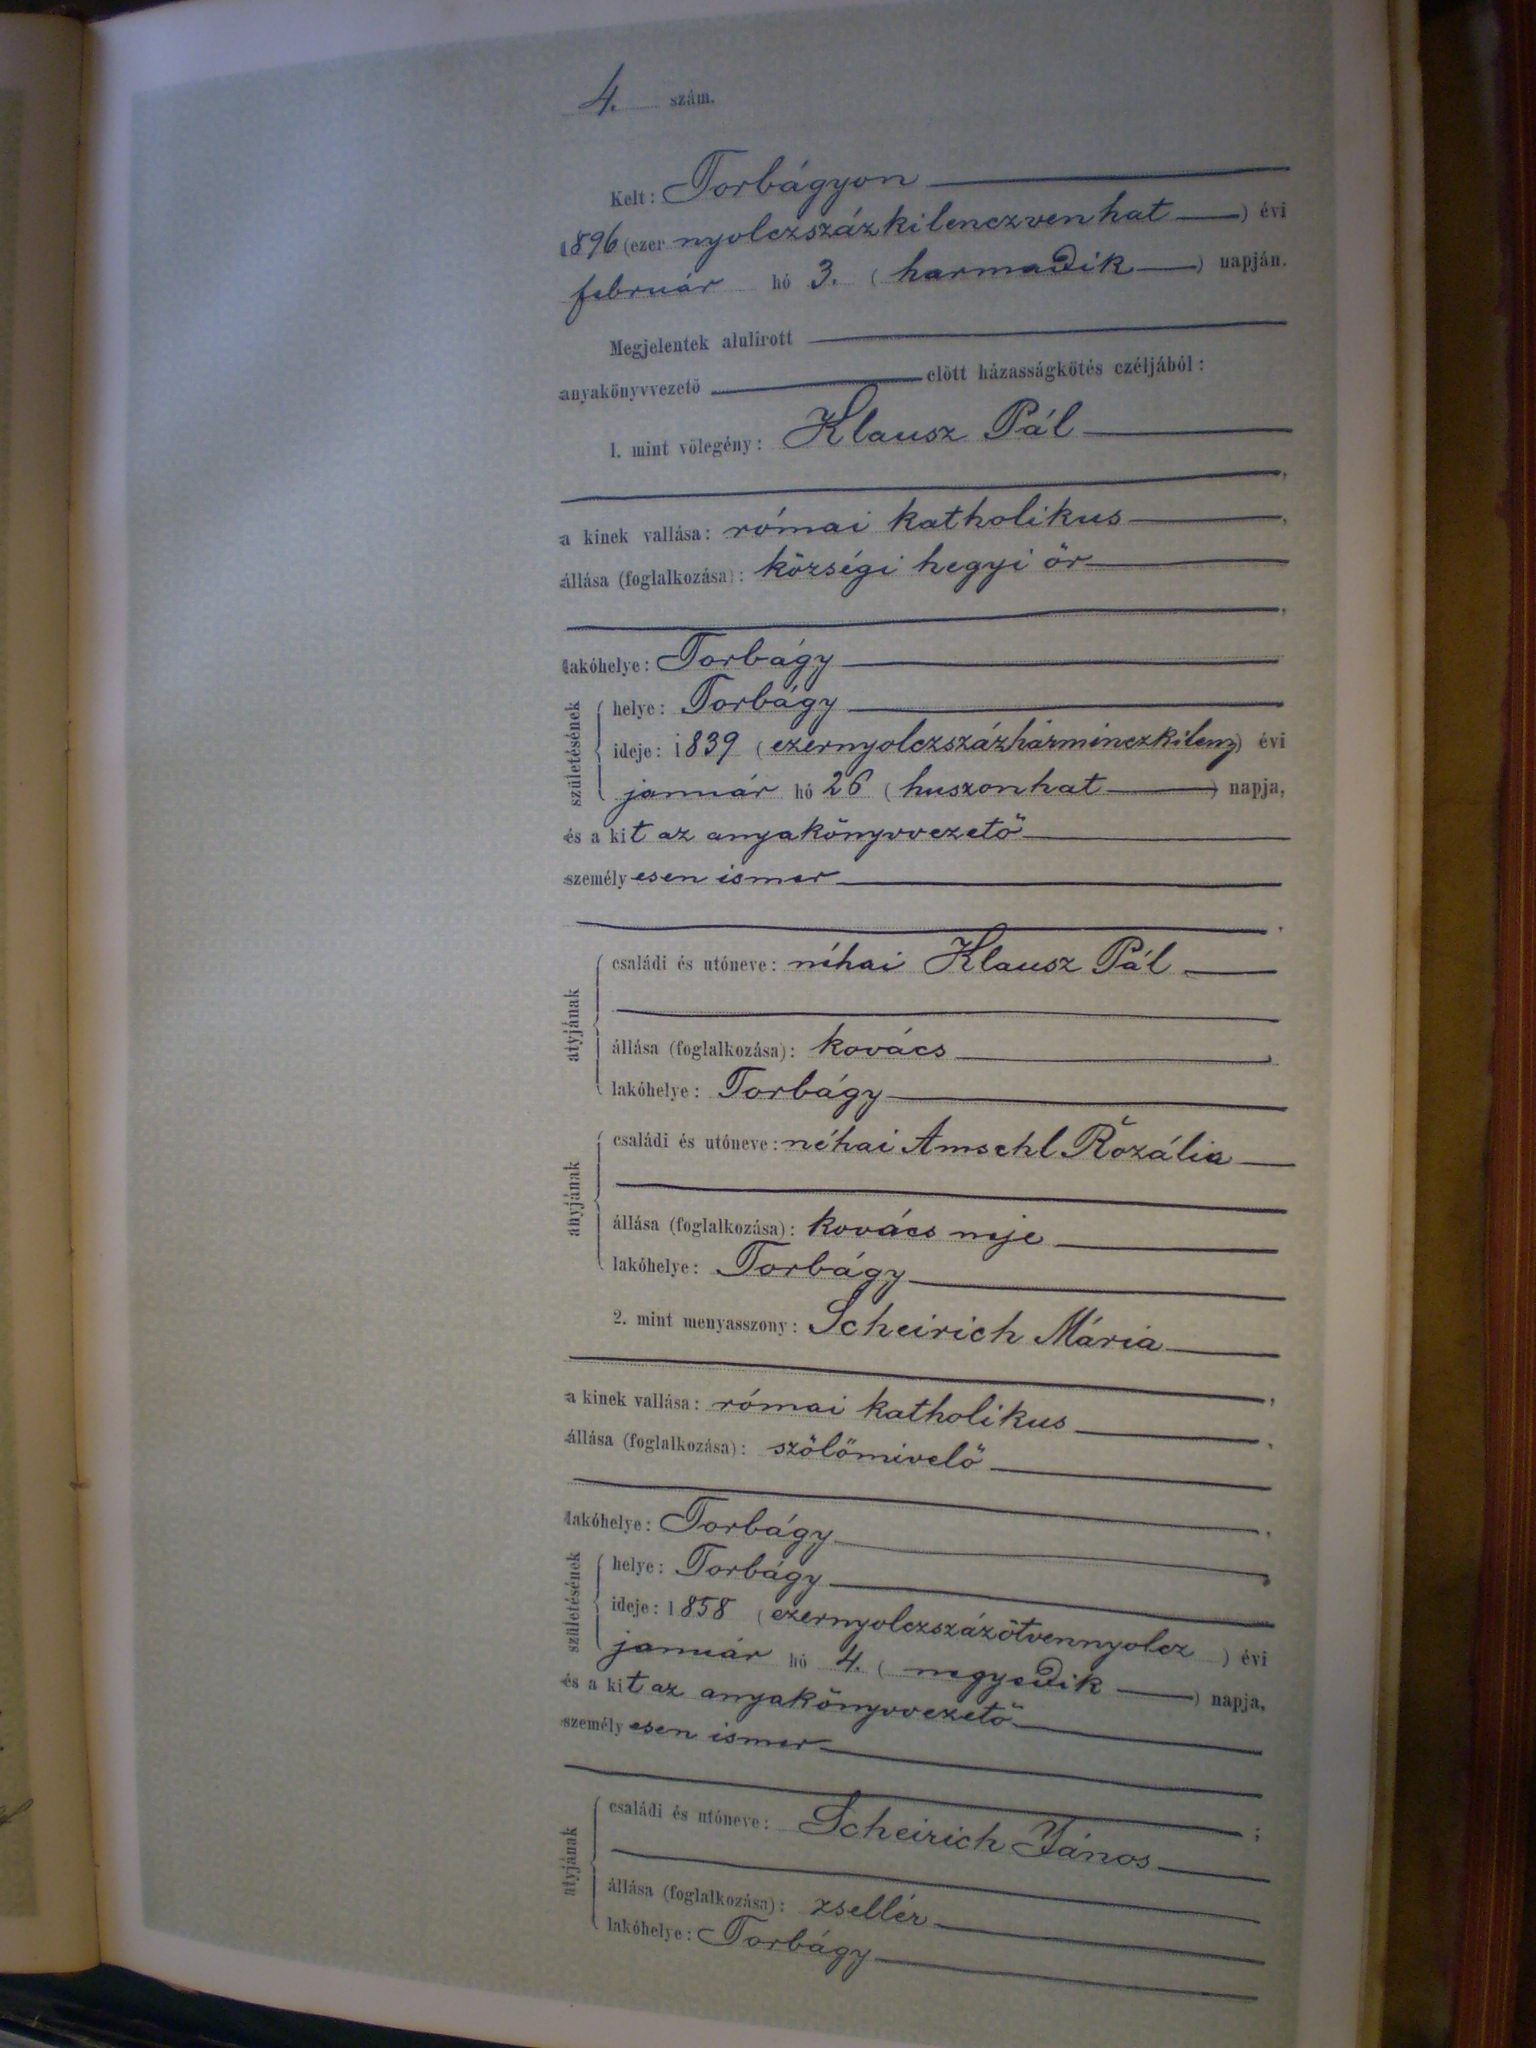 4. szám.
Kelt: Torbágyon
1896 (ezer nyolczszázkilenczvenhat) évi
február hó 3. (harmadik) napján.
Megjelentek alulirott
anyakönyvvezető előtt házasságkötés czéljából:
1. mint vőlegény: Klausz Pál
a kinek vallása: római katholikus,
állása (foglalkozása): községi hegyi őr
,
lakóhelye: Torbágy
születésének
helye: Torbágy
ideje: 1839 (ezernyolczszázharminczkilencz) évi
január hó 26 (huszonhat) napja,
és a kit az anyakönyvvezető
személyesen ismer
atyjának
családi és utóneve: néhai Klausz Pál
állása (foglalkozása): kovács
lakóhelye: Torbágy
anyjának
családi és utóneve: néhai Amschl Rozália
állása (foglalkozása): kovács neje
lakóhelye: Torbágy
2. mint menyasszony: Scheirich Mária
,
a kinek vallása: római katholikus,
állása (foglalkozása): szőlőmivelő
,
lakóhelye: Torbágy,
születésének
helye: Torbágy
ideje: 1858 (ezernyolczszázötvennyolcz) évi
január hó 4. (negyedik) napja,
és a kit az anyakönyvvezető
személyesen ismer
;
atyjának
családi és utóneve: Scheirich János
állása (foglalkozása): zsellér
lakóhelye: Torbágy